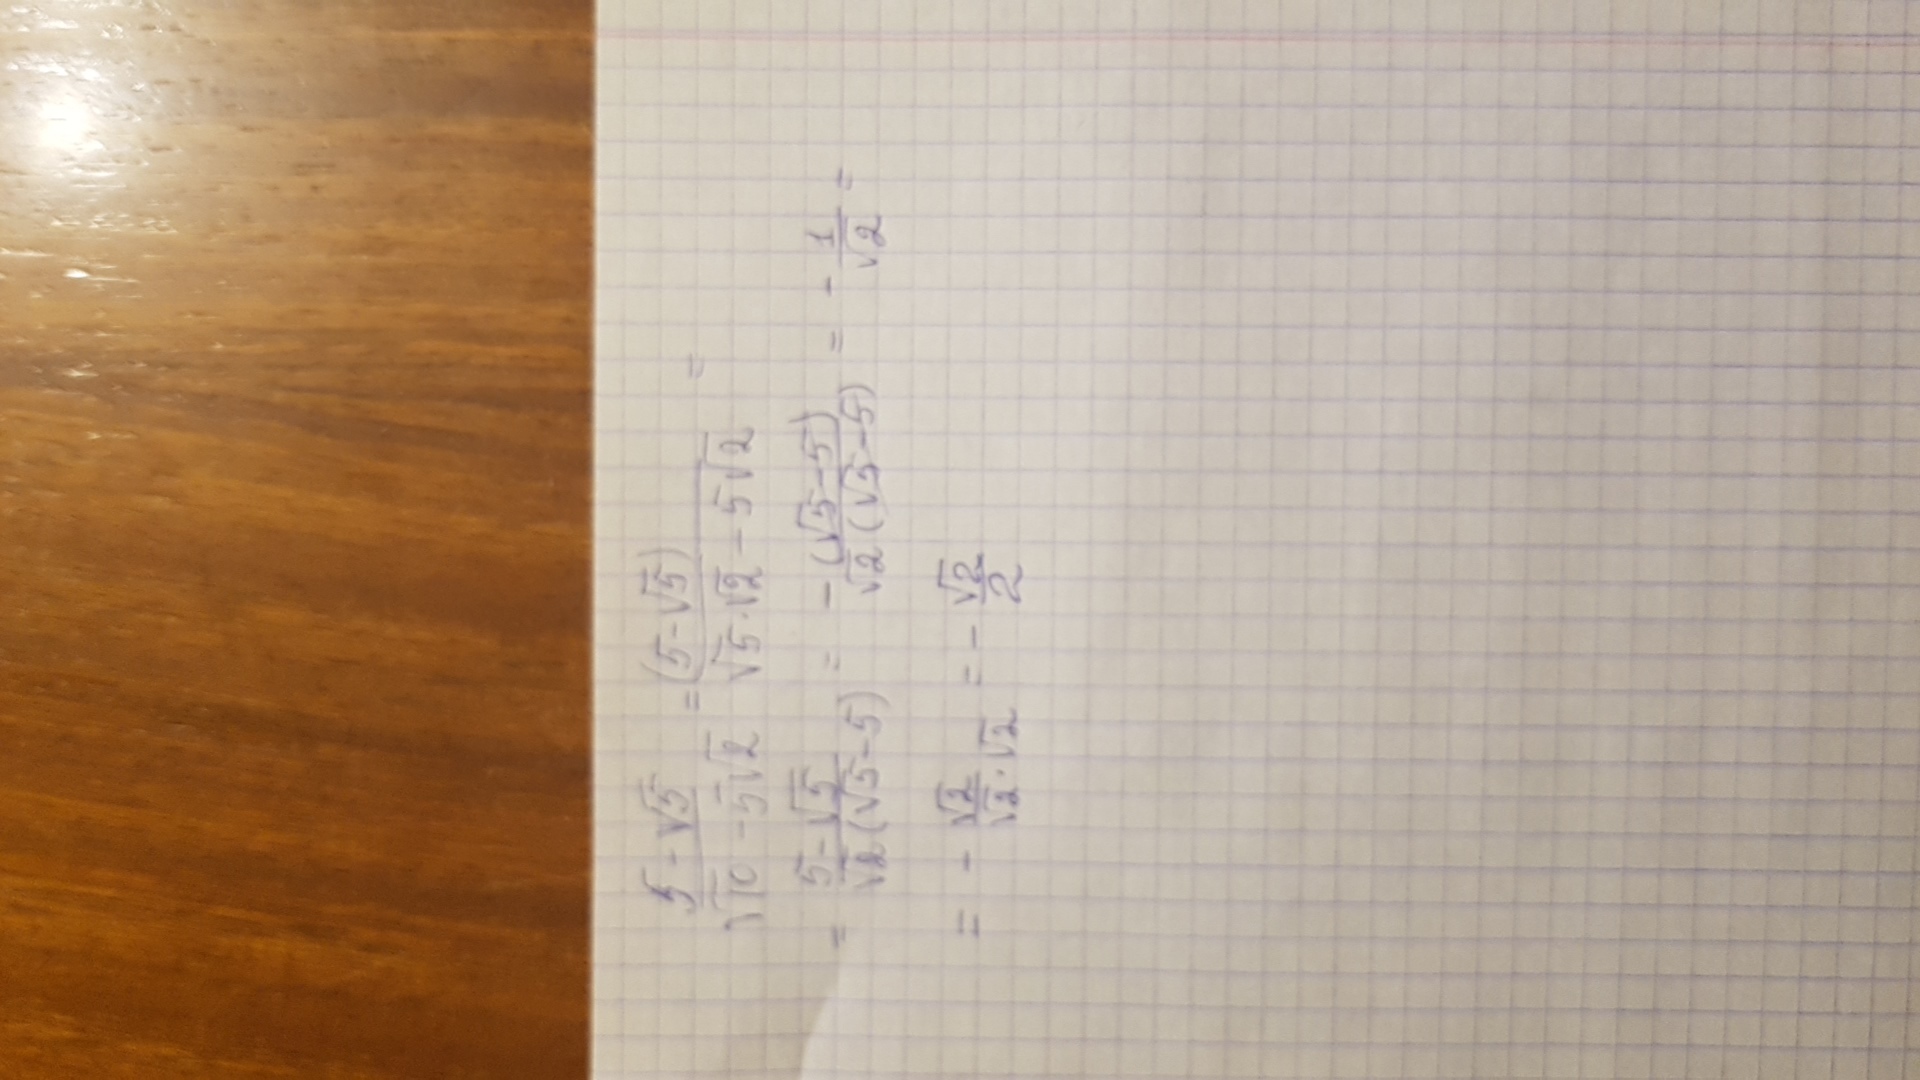 (5-√5)/(√10-5√2) = (5-√5)/(√5·√2-5√2) =
= (5-√5)/(√2(√5-5)) = -(√5-5)/(√2(√5-5)) = -1/√2 =
= -√2/(√2·√2) = -√2/2